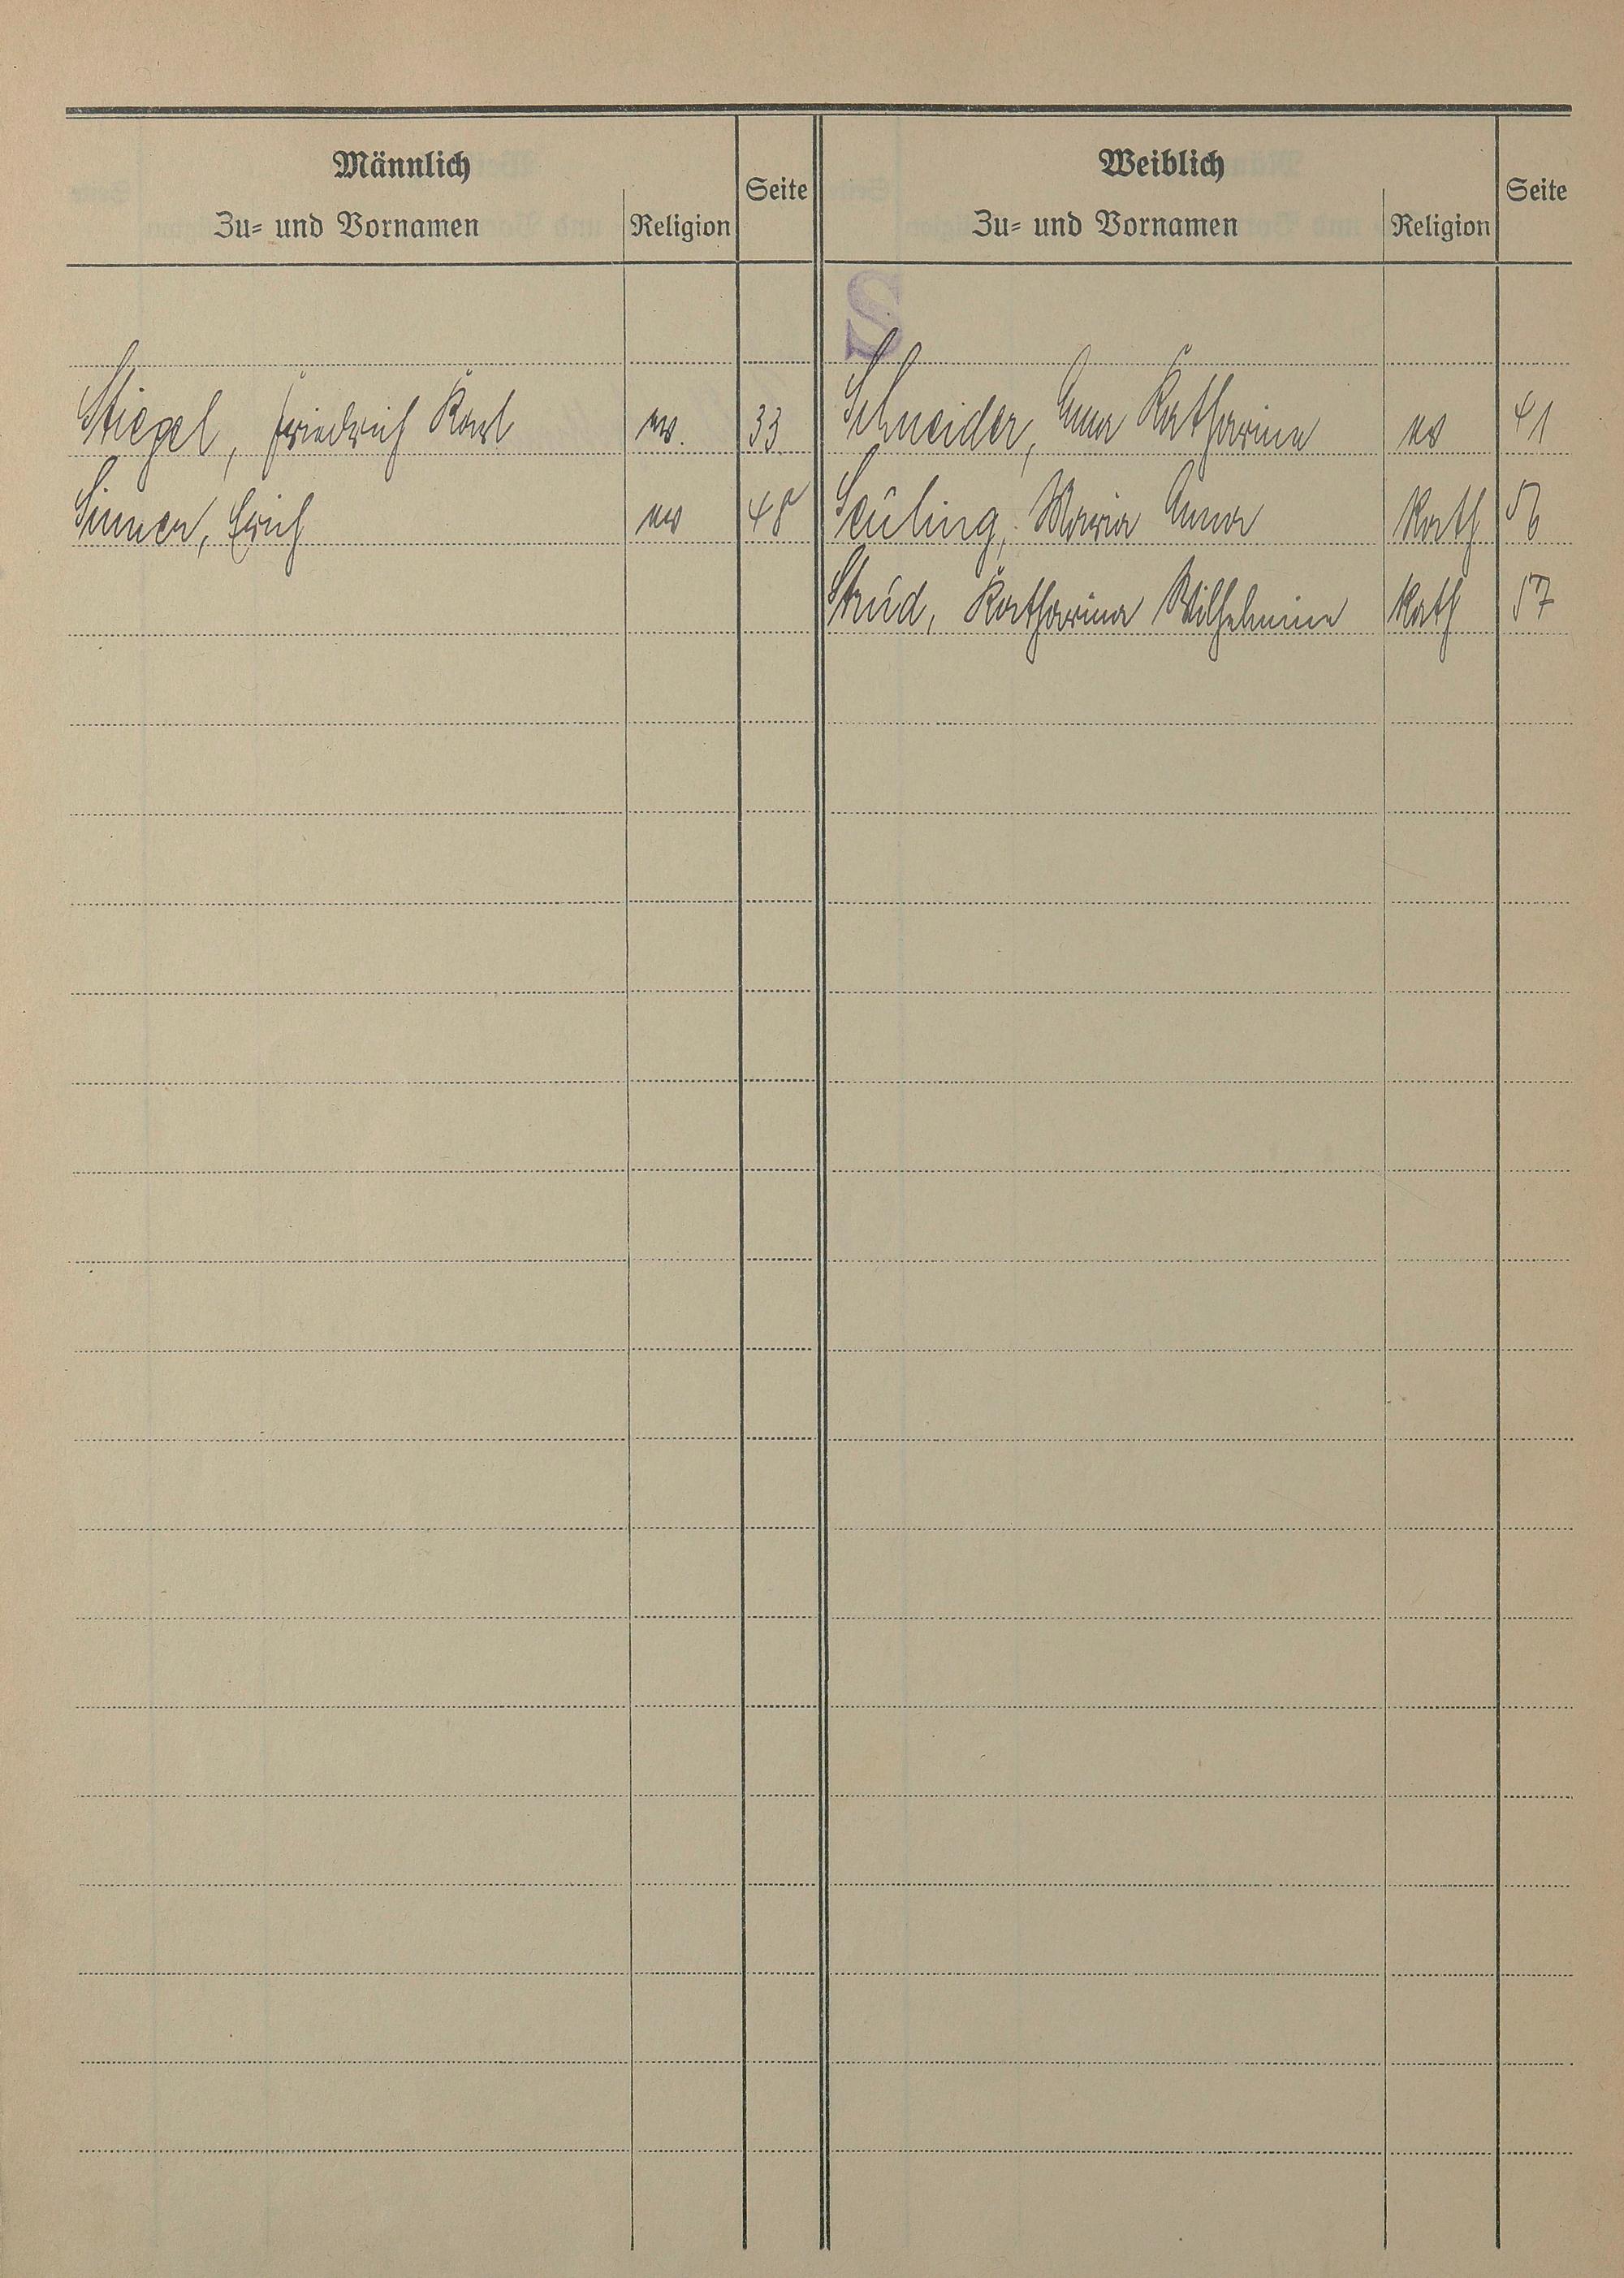 Männlich
Zu- und Vornamen
Religion
Seite
Weiblich
Zu- und Vornamen
Religion
Seite
S
Stiegel, Friedrich Karl ev. 33 Schneider, Anna Katharina ev 41
Simmer, Erich ev 48 Seuling, Maria Anna Kath 56
Strud, Katharina Wilhelmine Kath 57